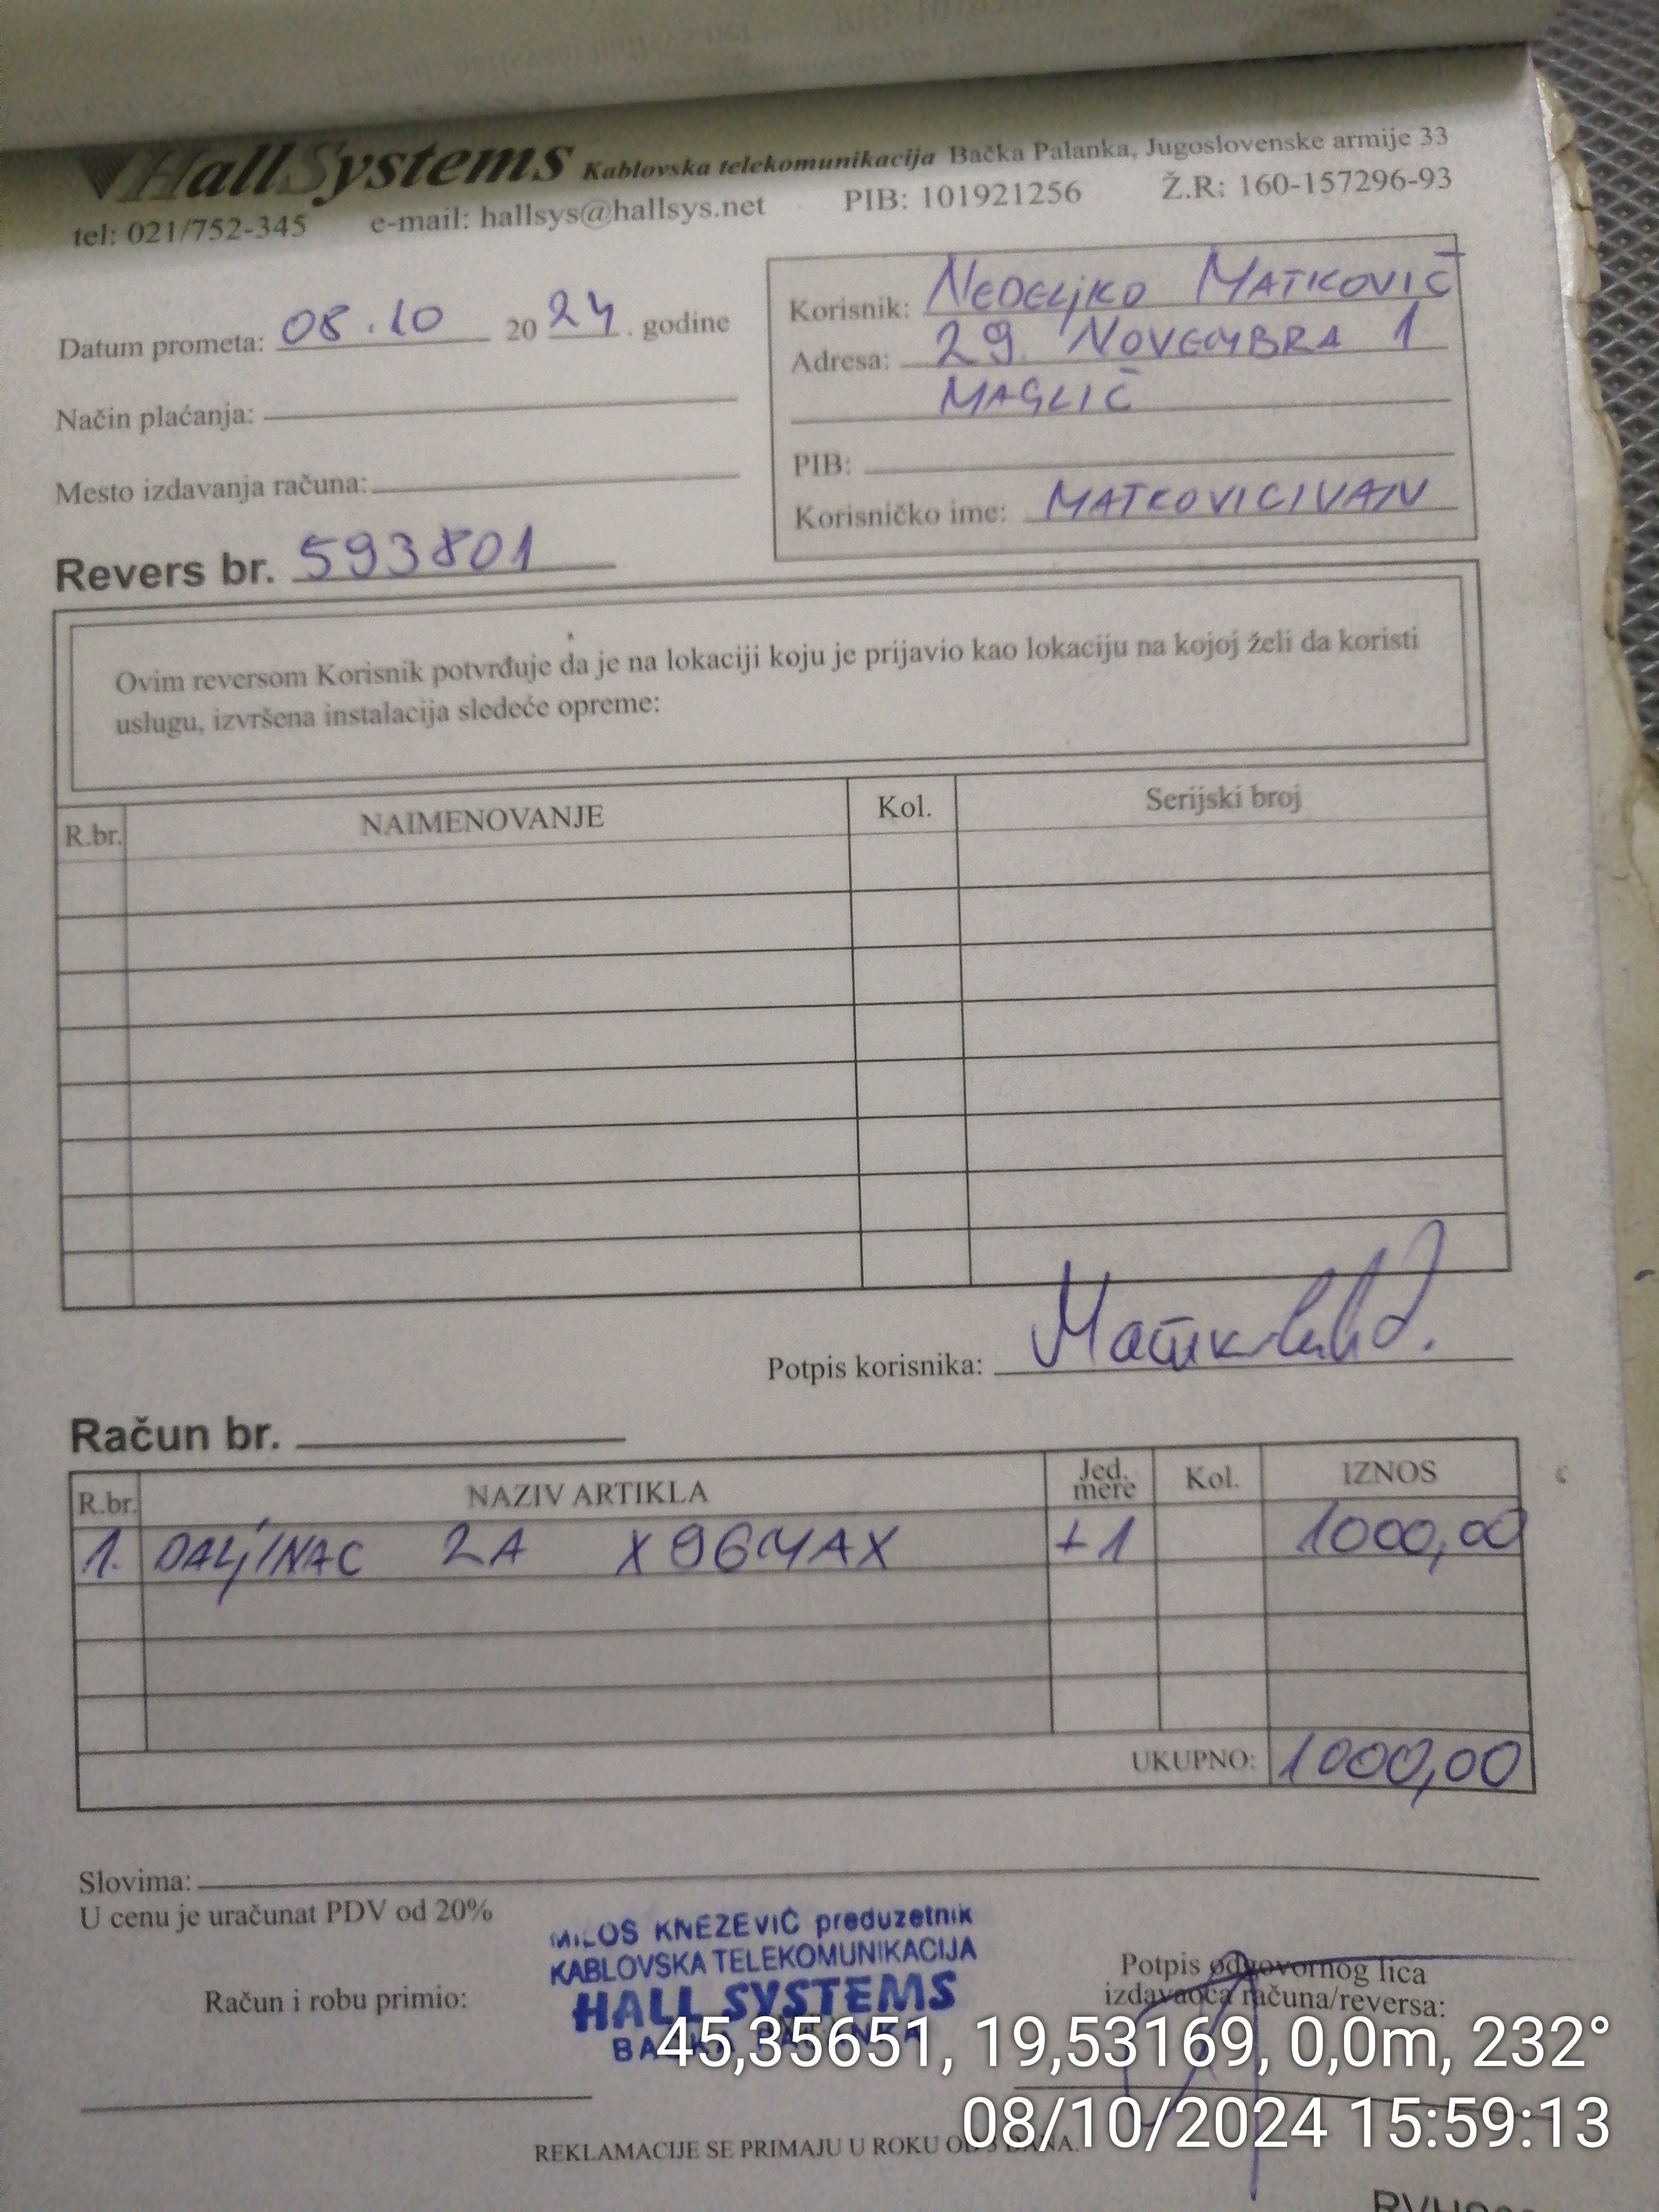 HallSystems Kablovska telekomunikacija Bačka Palanka, Jugoslovenske armije 33
tel: 021/752-345 e-mail: hallsys@hallsys.net PIB: 101921256 Ž.R: 160-157296-93
Datum prometa: 08.10 2024. godine
Način plaćanja:
Mesto izdavanja računa:
Revers br. 593801
Korisnik: NEDELjKO MATKOVIĆ
Adresa: 29. NOVEMBRA 1
MAGLIĆ
PIB:
Korisničko ime: MATKOVICIVAN
Ovim reversom Korisnik potvrđuje da je na lokaciji koju je prijavio kao lokaciju na kojoj želi da koristi
uslugu, izvršena instalacija sledeće opreme:
R.br. NAIMENOVANJE Kol. Serijski broj
Potpis korisnika:
Račun br.
R.br. NAZIV ARTIKLA Jed. mere Kol. IZNOS
1. DALjINAC ZA X96MAX +1 1000,00
UKUPNO: 1000,00
Slovima:
U cenu je uračunat PDV od 20%
MILOŠ KNEŽEVIĆ preduzetnik
KABLOVSKA TELEKOMUNIKACIJA
HALL SYSTEMS
BAČKA PALANKA
Račun i robu primio:
Potpis odgovornog lica
izdavaoca računa/reversa:
45,35651, 19,53169, 0,0m, 232°
08/10/2024 15:59:13
REKLAMACIJE SE PRIMAJU U ROKU OD DANA.